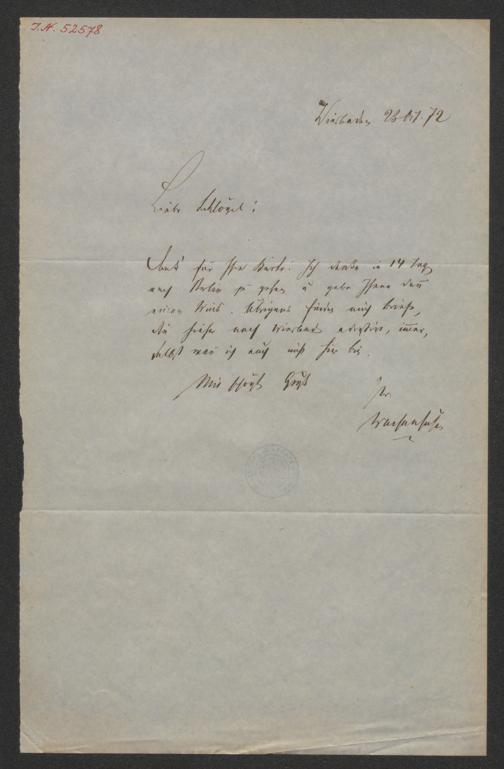 I.N. 52578
Wiesbaden 28 Okt. 72
Lieber Schlögel!
Dank für Ihre Karte. Ich denke in 14 Tag
nach Berlin zu gehen u gebe Ihnen dan
einen Wink. Übrigens finden mich Briefe,
die hieher nach Wiesbad adressirt, immer,
selbst wen ich auch nicht hier bin.
Mit schönst Gruß
Ihr
Wachenhusen